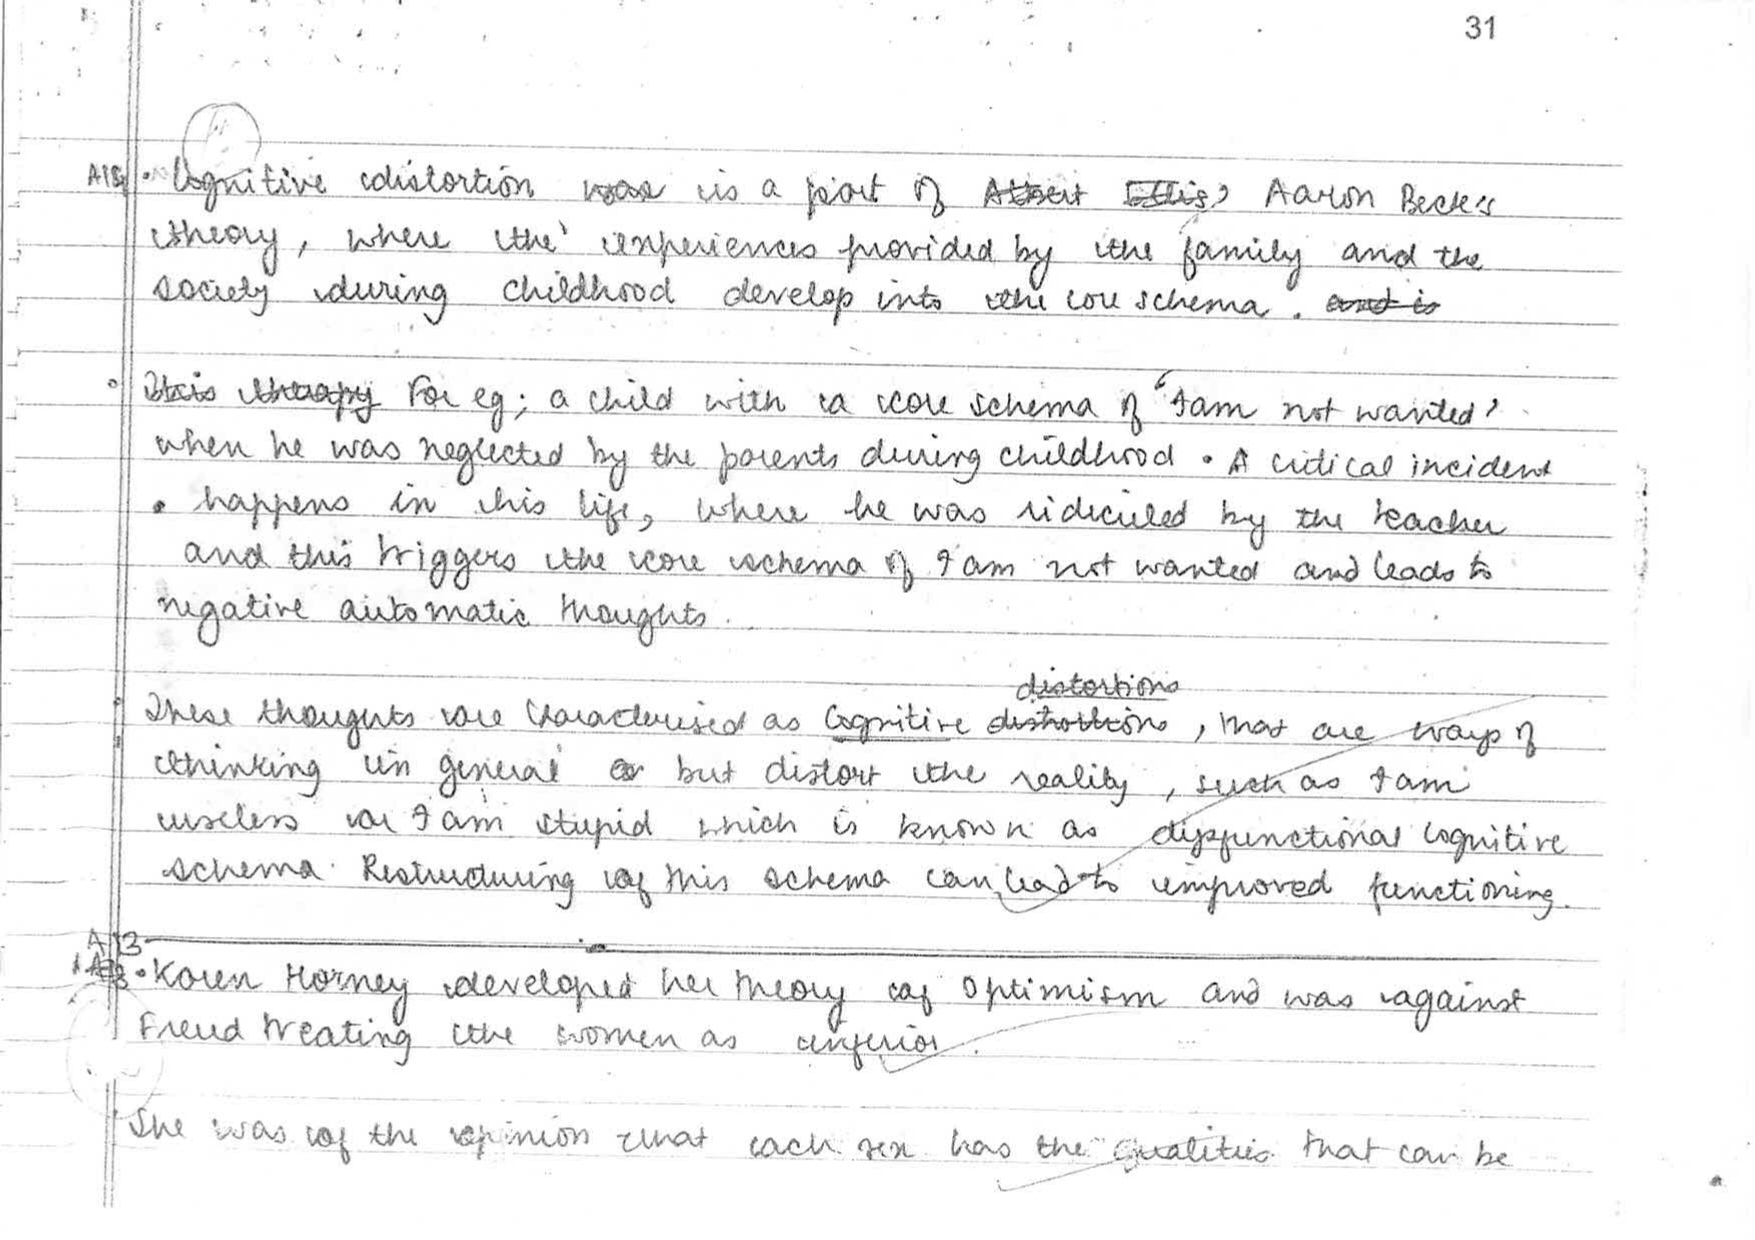 31
A12 • Cognitive distortion was is a part of Albert Ellis, Aaron Beck's
theory, where the experiences provided by the family and the
society during childhood develop into the core schema. and is
This therapy For eg; a child with a core schema of 'I am not wanted'
when he was neglected by the parents during childhood. A critical incident
happens in his life, where he was ridiculed by the teacher
and this triggers the core schema of I am not wanted and leads to
negative automatic thoughts.
distortions
These thoughts are characterised as Cognitive distortions, that are ways of
thinking in general or but distort the reality, such as I am
useless or I am stupid which is known as dysfunctional cognitive
schema. Restructuring of this schema can lead to improved functioning.
A13
• Karen Horney developed her theory of Optimism and was against
Freud treating the women as inferior.
She was of the opinion that each sex has the qualities that can be